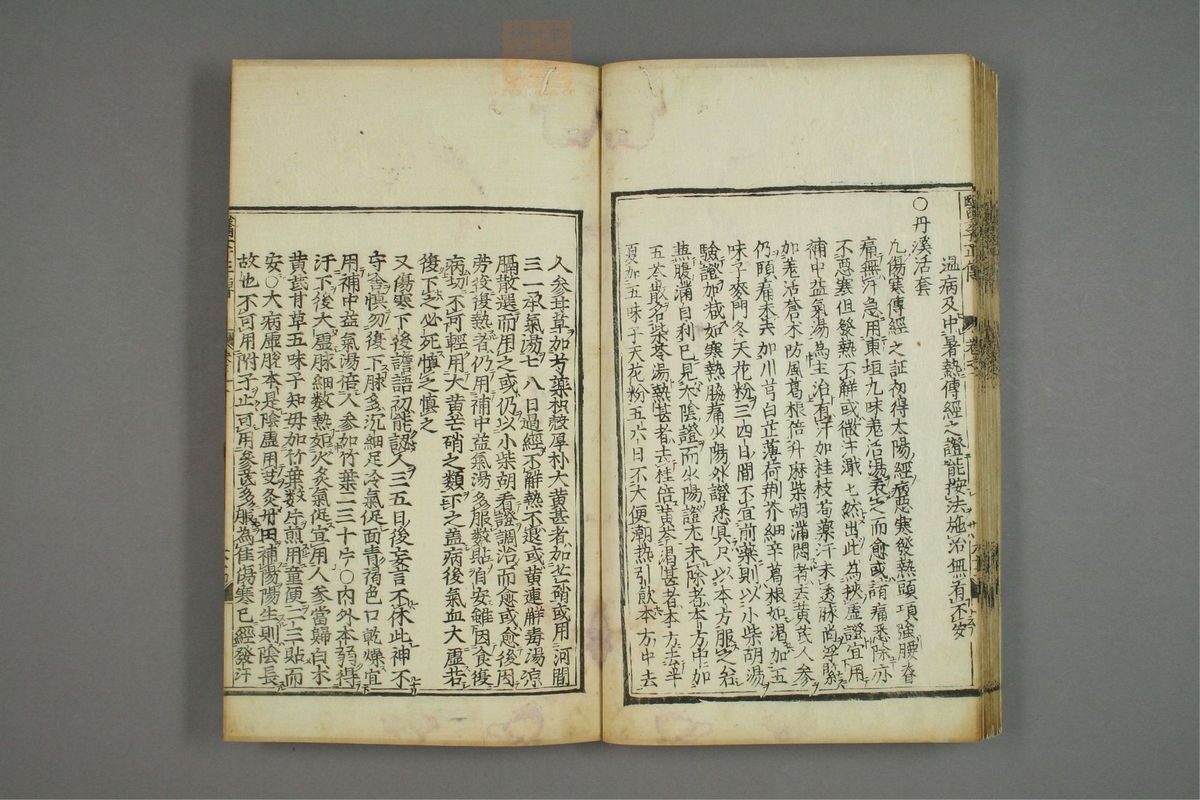 温病及中暑熱傳經之證能按法施治無有不安
○丹溪活套
凡傷寒傳經之証初得太陽經病惡寒發熱頭項強腰脊
痛無汗急用東垣九味羗活湯表之而愈或諸痛悉除亦
不惡寒但發熱不解或微汗濈濈然出此為挾虛證宜用
補中益氣湯為主治有汗加桂枝芍藥汗未透脉尚浮緊
加羗活蒼朮防風葛根倍升麻柴胡滿悶者去黃芪人參
仍頭痛未去加川芎白芷薄荷荆芥細辛葛根如渴加五
味子麥門冬天花粉三四日間不宜前藥則以小柴胡湯
驗證加减如寒熱脇痛少陽外證悉具只以本方服之若
無腹滿自利已見太陰證而少陽證尤未除者本方中加
五苓散名柴苓湯熱甚者去桂倍黃芩渴甚者本方去半
夏加五味子天花粉五六日不大便潮熱引飲本方中去
人參甘草加芍藥枳殼厚朴大黃甚者加芒硝或用河間
三一承氣湯七八日過經不解熱不退或黃連解毒湯凉
膈散選而用之或仍以小柴胡看證調治而愈或愈後因
勞役復熱者仍用補中益氣湯多服數貼自安雖因食復
病切不可輕用大黃芒硝之類下之盖病後氣血大虛若
復下之必死慎之慎之
又傷寒下後譫語初能認人三五日後妄言不休此神不
守舍慎勿復下脉多沉細足冷氣促面青褐色口乾燥宜
用補中益氣湯倍人參加竹葉二三十片○内外本弱得
汗下後大虛脉細數熱如火炙氣促宜用人參當歸白朮
黃芪甘草五味子知母加竹葉数片煎用童便二三貼而
安○大病虛脫本是陰虛用艾灸丹田補陽陽生則陰長
故也不可用附子止可用參芪多服為佳傷寒已經發汗